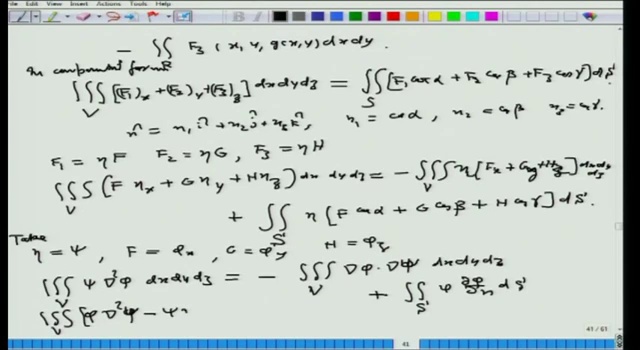 File Edit View Insert Actions Tools Help
- ∬_R F₃ (x, y, g(x,y) dx dy.
In component form
∭_V [(F₁)_x + (F₂)_y + (F₃)_z] dx dy dz = ∬_S [F₁ cos α + F₂ cos β + F₃ cos γ] dS
n̂ = n₁ î + n₂ ĵ + n₃ k̂, n₁ = cos α, n₂ = cos β n₃ = cos γ.
F₁ = ηF F₂ = ηG, F₃ = ηH
∭_V (F η_x + G η_y + H η_z) dx dy dz = - ∭_V η [F_x + G_y + H_z] dx dy dz
+ ∬_S η [F cos α + G cos β + H cos γ] dS.
Take
η = ψ, F = φ_x, G = φ_y H = φ_z
∭_V ψ ∇²φ dx dy dz = - ∭_V ∇φ · ∇ψ dx dy dz
+ ∬_S ψ ∂φ/∂n dS
∭_V [φ ∇²ψ - ψ
41 / 61
41